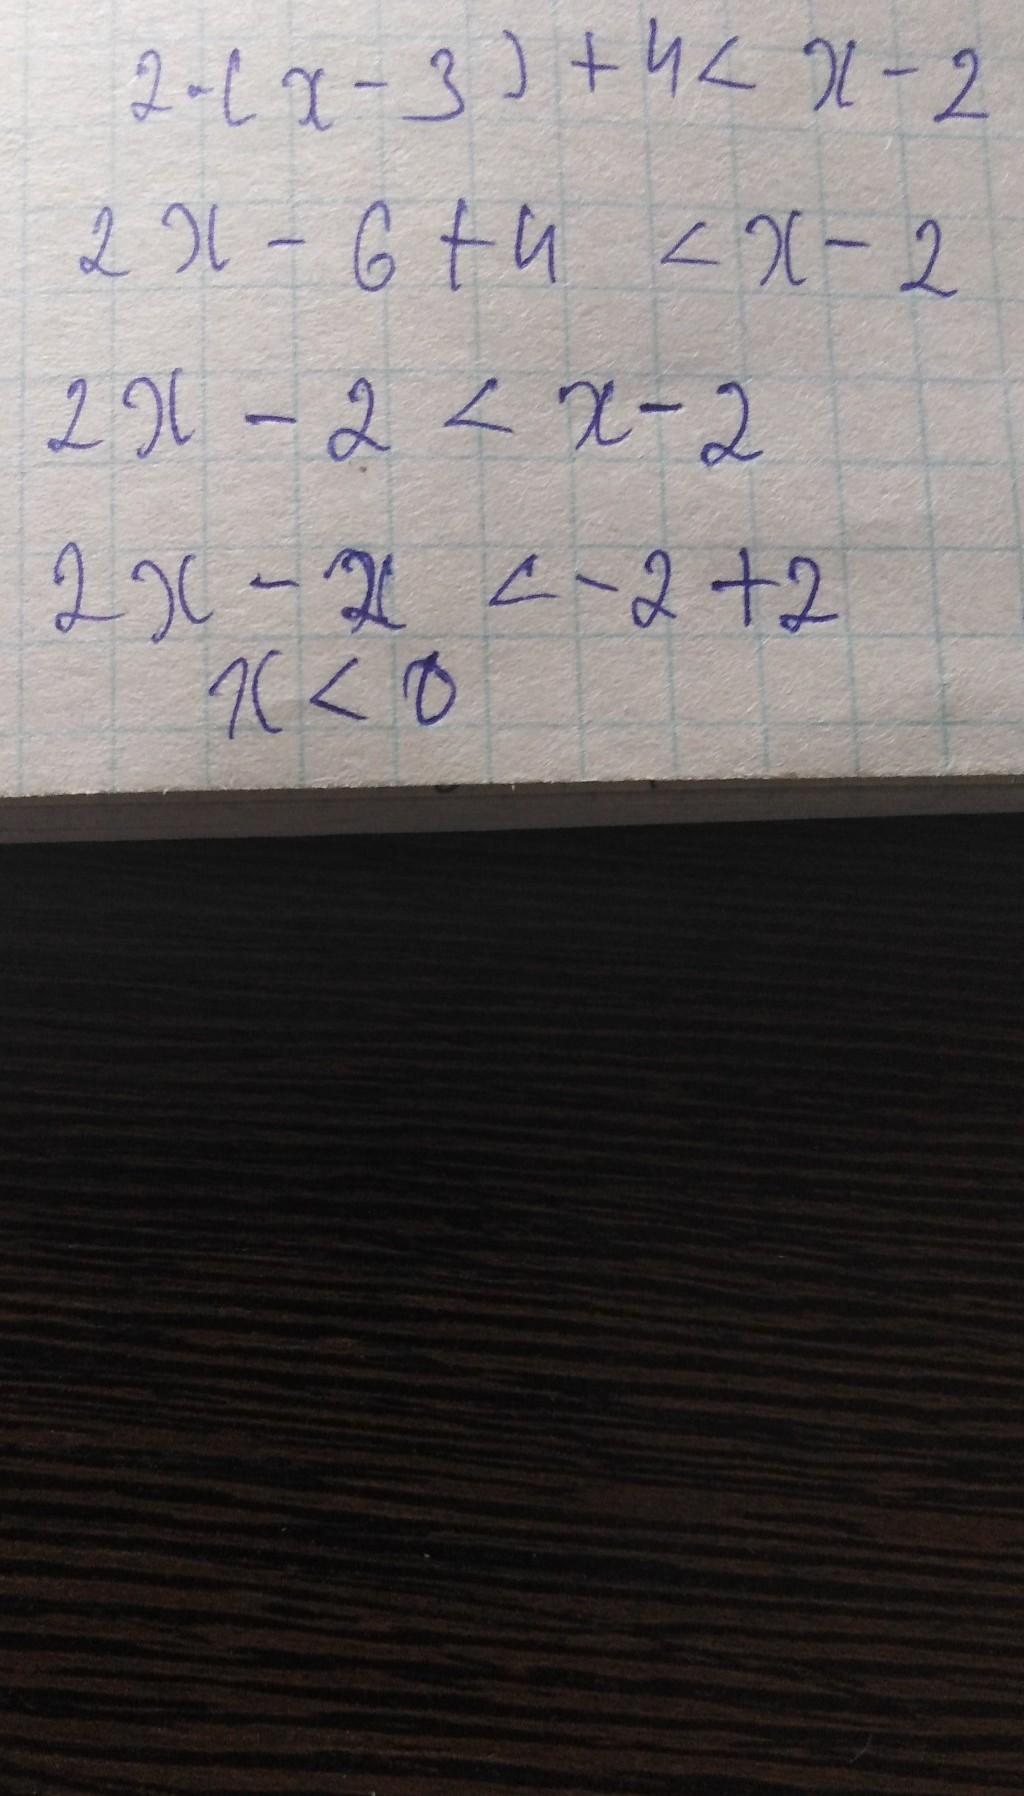 2·(x-3)+4< x-2
2x - 6 + 4 < x - 2
2x - 2 < x - 2
2x - x < -2 + 2
x < 0